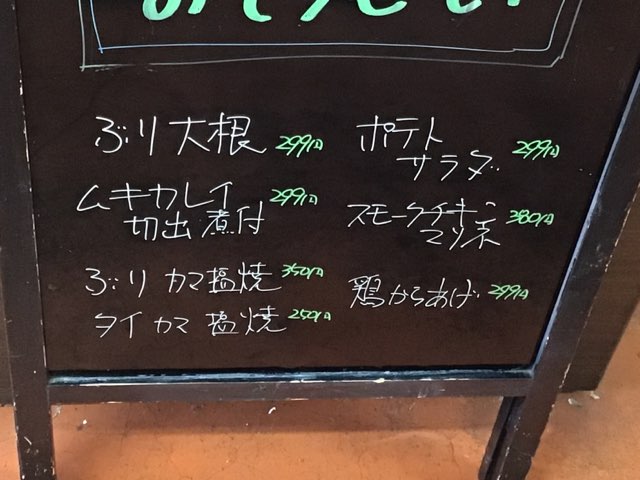 ぶり大根 299円
ムキカレイ
切出煮付 299円
ぶり カマ塩焼 350円
タイ カマ 塩焼 250円
ポテト
サラダ 299円
スモークチキン
マリネ 380円
鶏からあげ 299円